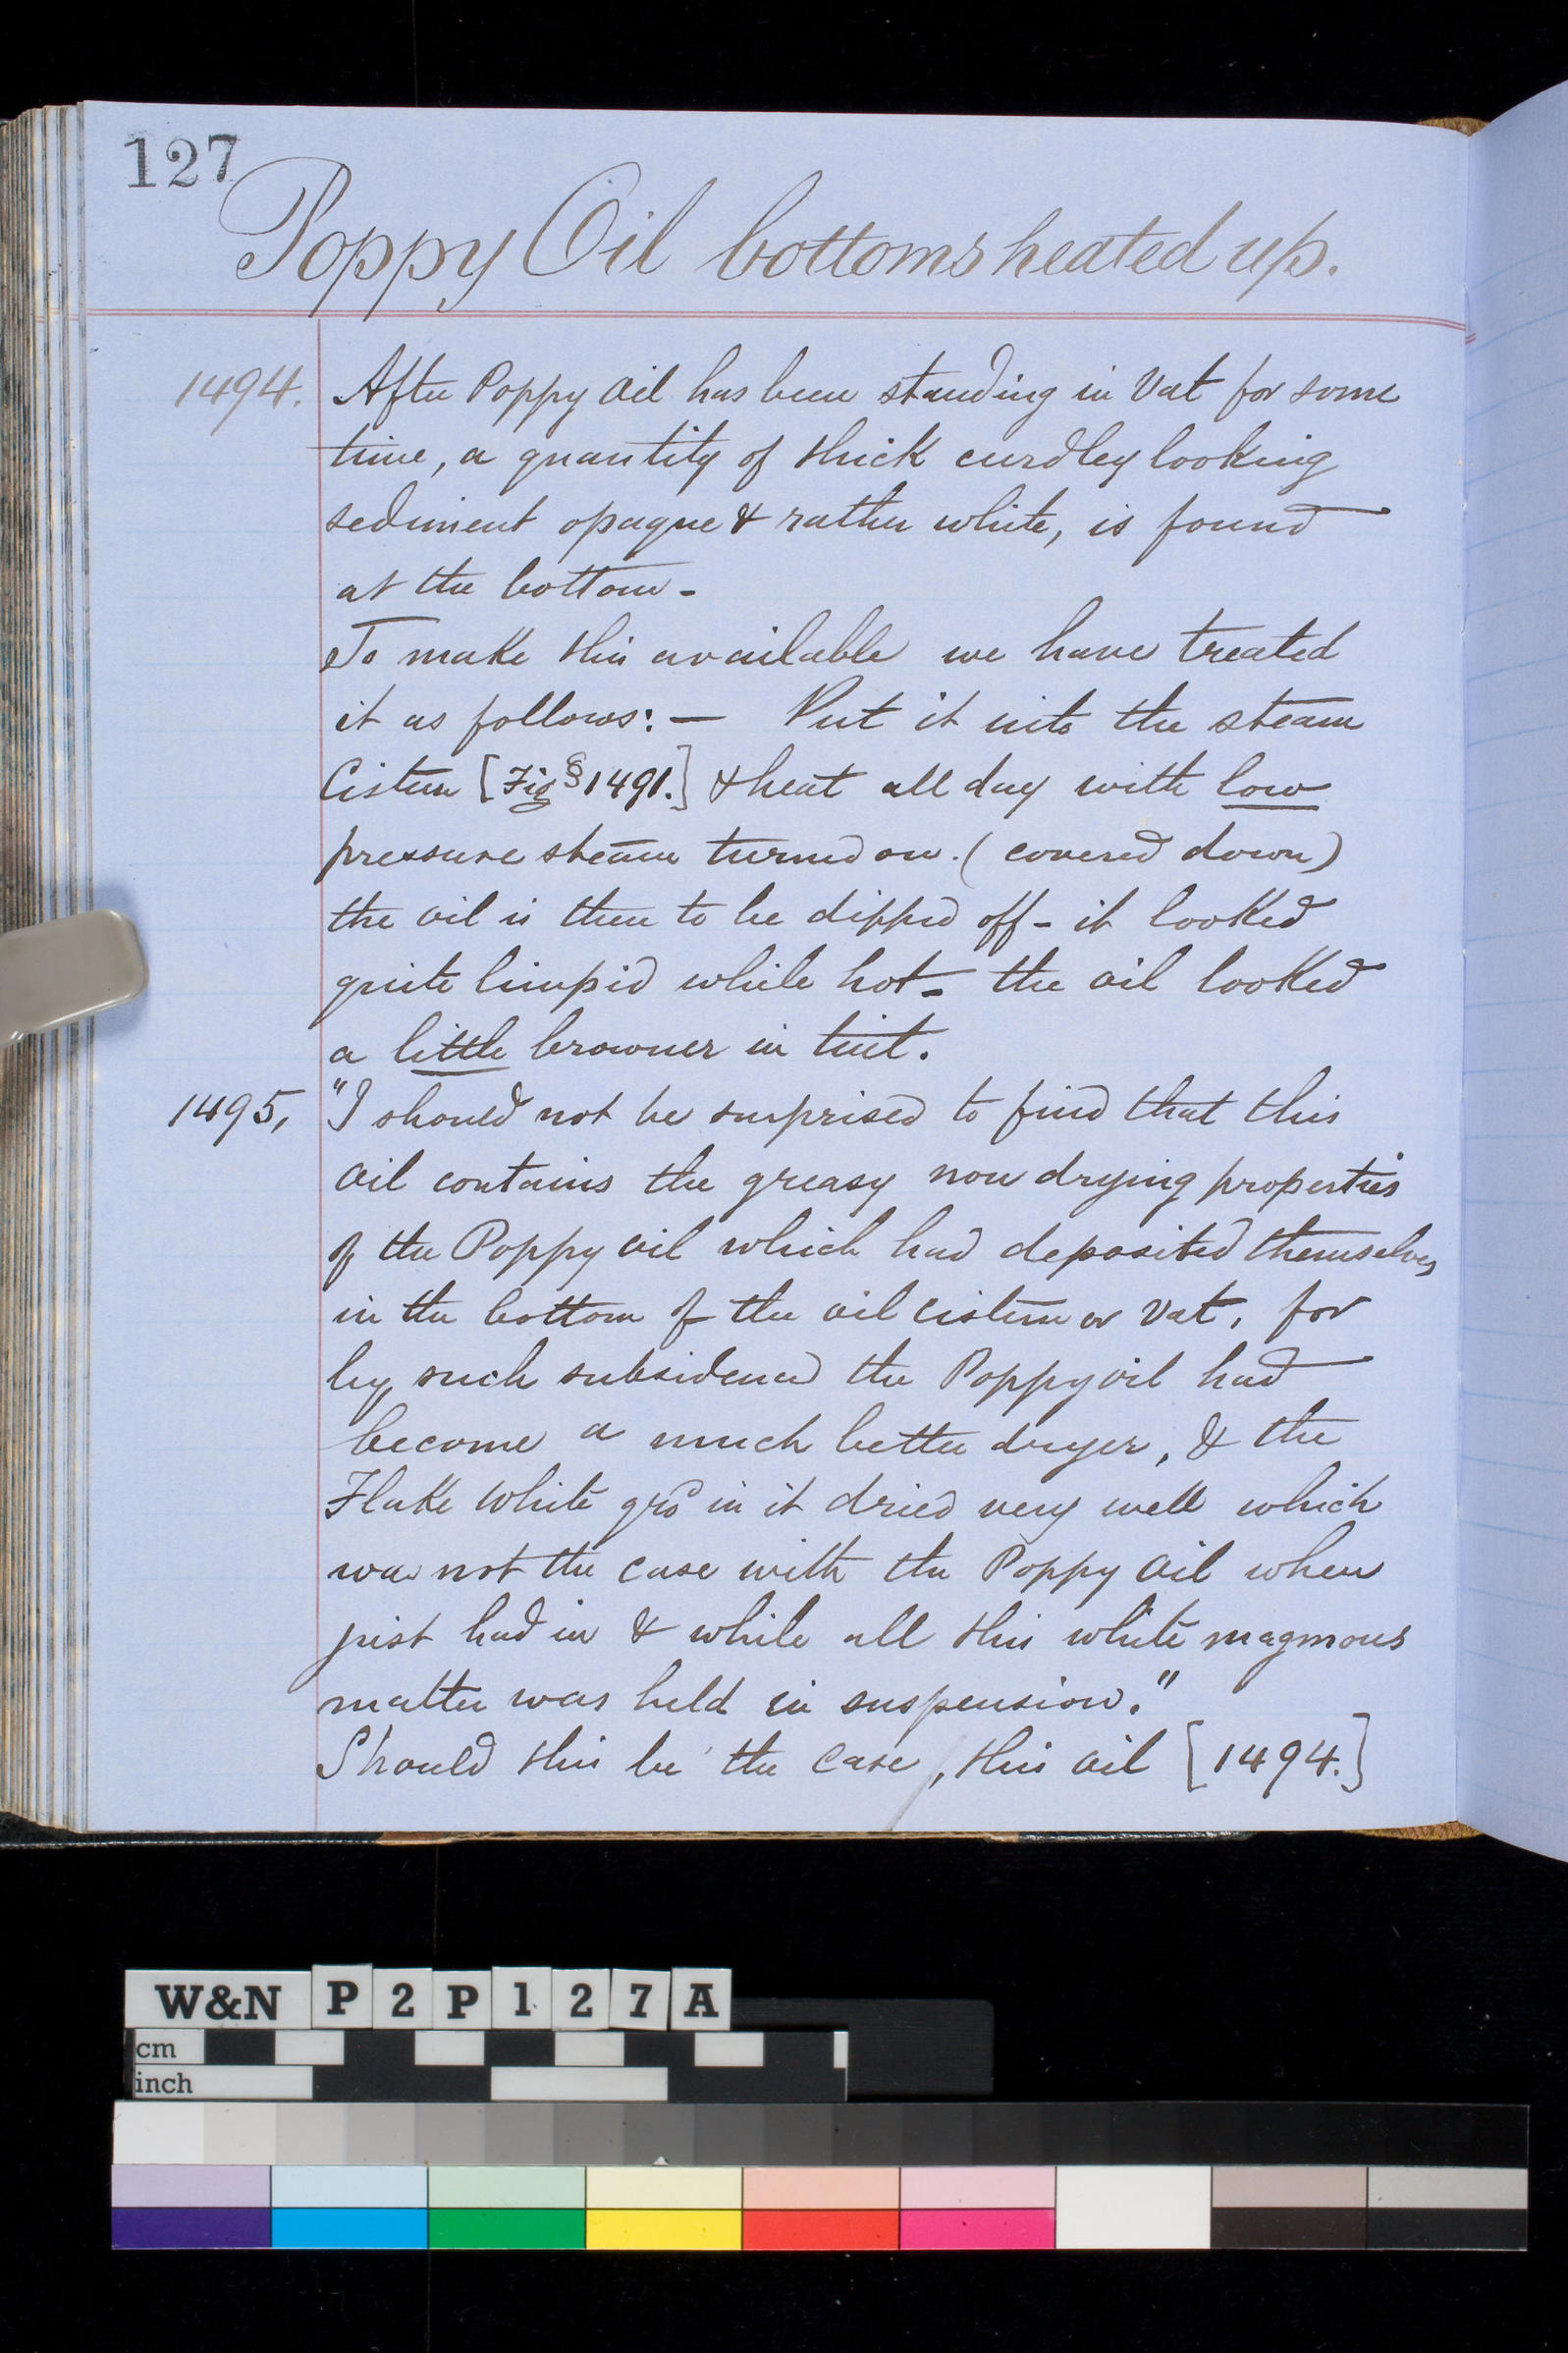 127
Poppy Oil bottoms heated up.
1494. After Poppy Oil has been standing in Vat for some
time, a quantity of thick curdley looking
sediment opaque & rather white, is found
at the bottom -
To make this available we have treated
it as follows: — Put it into the steam
Cistern [Fig § 1491.] & heat all day with low
pressure steam turned on. (covered down)
the oil is then to be dipped off - it looked
quite limpid while hot - the oil looked
a little browner in tint.
1495, "I should not be surprised to find that this
Oil contains the greasy non drying properties
of the Poppy oil which had deposited themselves
in the bottom of the oil cistern or Vat, for
by such subsidence the Poppy oil had
become a much better dryer, & the
Flake White grd in it dried very well which
was not the case with the Poppy Oil when
just had in & while all this white magmous
matter was held in suspension."
Should this be the case, this oil [1494.]
W&N P2P127A
cm
inch